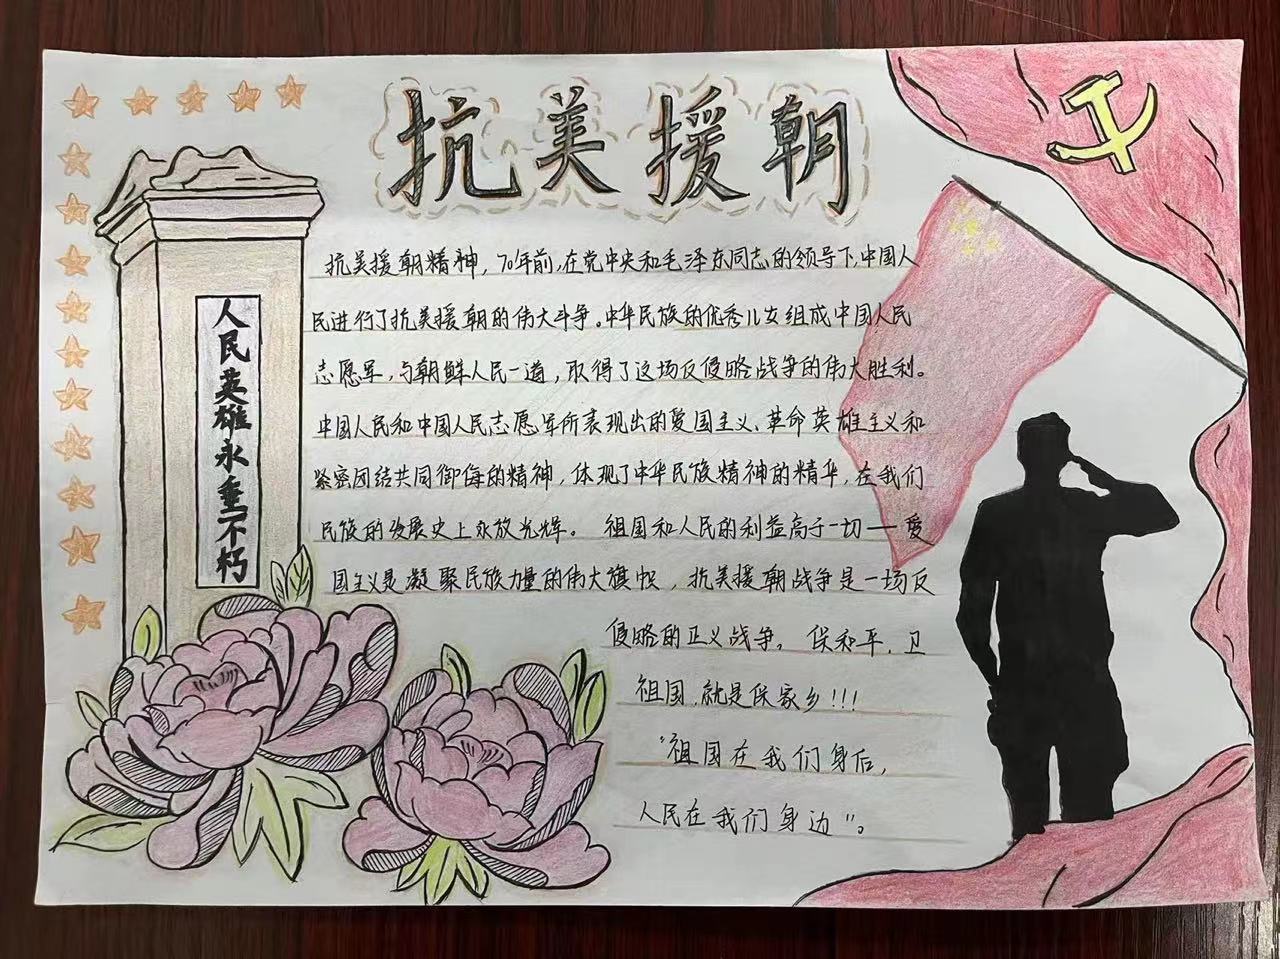 抗美援朝
人民英雄永垂不朽
抗美援朝精神，70年前，在党中央和毛泽东同志的领导下，中国人
民进行了抗美援朝的伟大斗争。中华民族的优秀儿女组成中国人民
志愿军，与朝鲜人民一道，取得了这场反侵略战争的伟大胜利。
中国人民和中国人民志愿军所表现出的爱国主义、革命英雄主义和
紧密团结共同御侮的精神，体现了中华民族精神的精华，在我们
民族的发展史上永放光辉。 祖国和人民的利益高于一切——爱
国主义是凝聚民族力量的伟大旗帜，抗美援朝战争是一场反
侵略的正义战争。 保和平，卫
祖国，就是保家乡!!!
“祖国在我们身后，
人民在我们身边”。